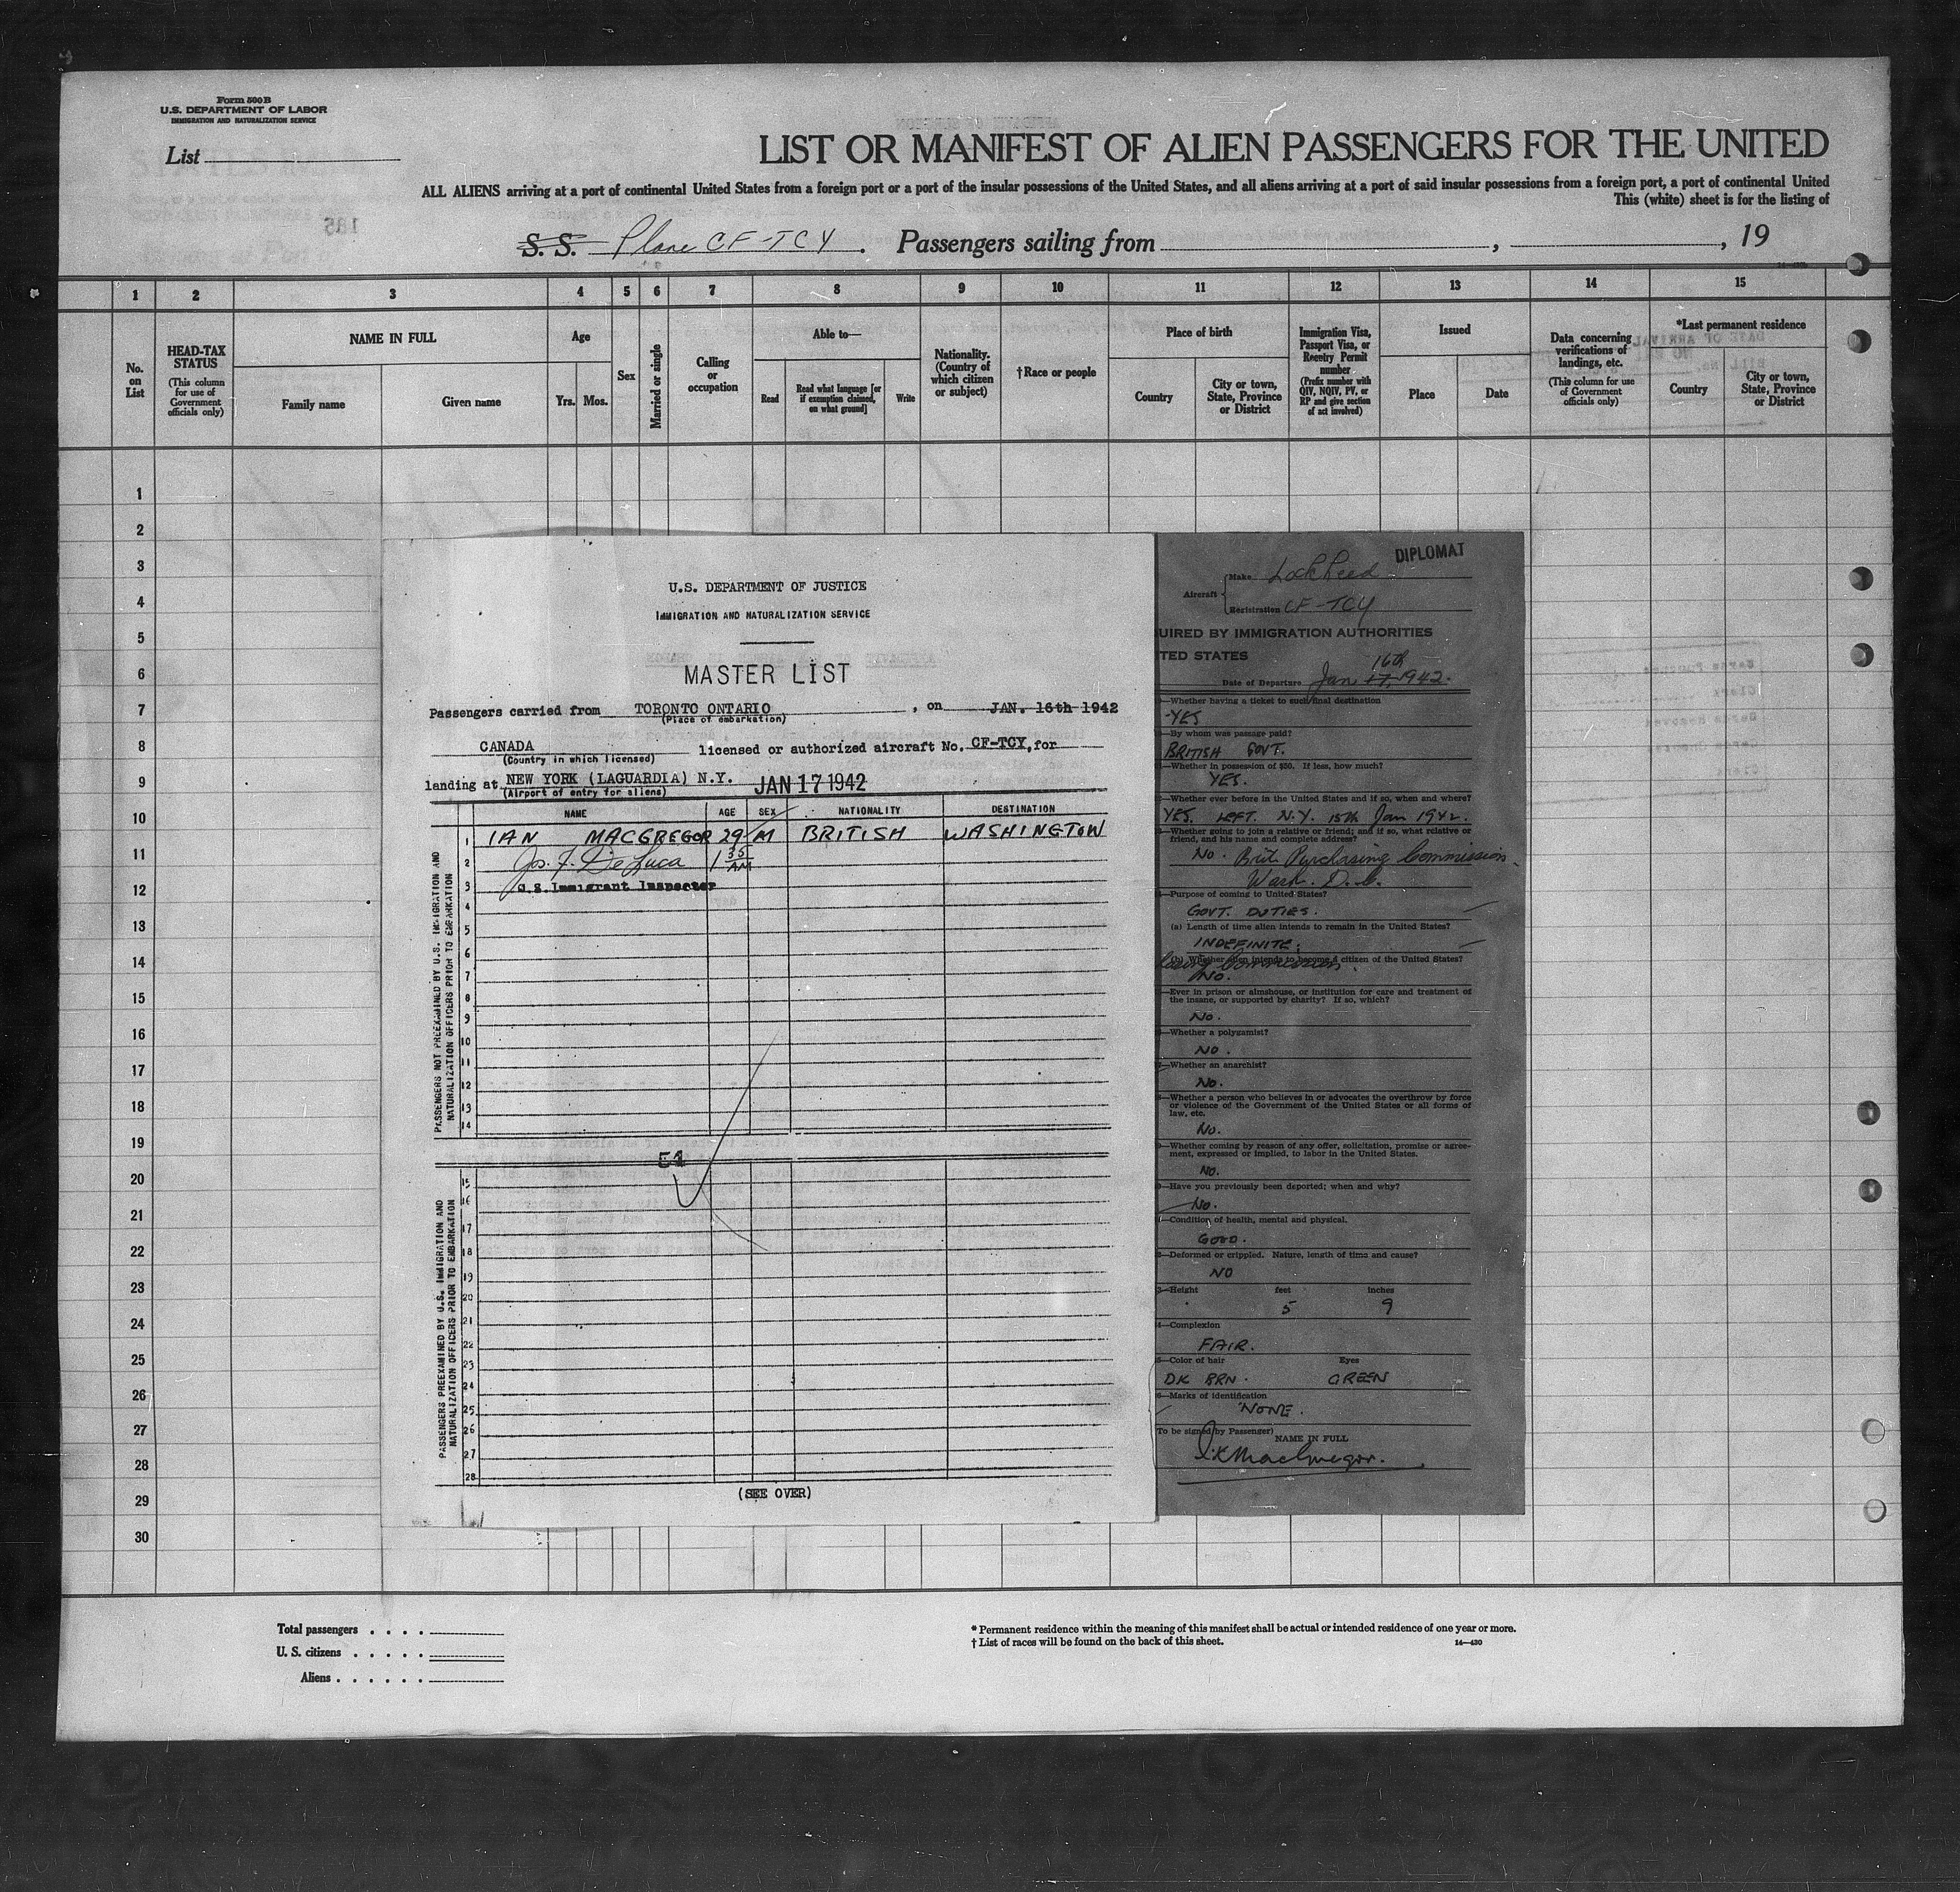 Form 500 B
U.S. DEPARTMENT OF LABOR
IMMIGRATION AND NATURALIZATION SERVICE
List
LIST OR MANIFEST OF ALIEN PASSENGERS FOR THE UNITED
ALL ALIENS arriving at a port of continental United States from a foreign port or a port of the insular possessions of the United States, and all aliens arriving at a port of said insular possessions from a foreign port, a port of continental United
This (white) sheet is for the listing of
S. S. Plane CF-TCY. Passengers sailing from , , 19
1 2 3 4 5 6 7 8 9 10 11 12 13 14 15
No. on List
HEAD-TAX STATUS
(This column for use of Government officials only)
NAME IN FULL
Family name Given name
Age
Yrs. Mos.
Sex
Married or single
Calling or occupation
Able to—
Read
Read what language [or if exemption claimed, on what ground]
Write
Nationality. (Country of which citizen or subject)
†Race or people
Place of birth
Country
City or town, State, Province or District
Immigration Visa, Passport Visa, or Reentry Permit number
(Prefix number with QIV, NQIV, PV, or RP and give section of act involved)
Issued
Place Date
Data concerning verifications of landings, etc.
(This column for use of Government officials only)
*Last permanent residence
Country
City or town, State, Province or District
1
2
3
4
5
6
7
8
9
10
11
12
13
14
15
16
17
18
19
20
21
22
23
24
25
26
27
28
29
30
U.S. DEPARTMENT OF JUSTICE
IMMIGRATION AND NATURALIZATION SERVICE
MASTER LIST
Passengers carried from TORONTO ONTARIO, on JAN. 16th 1942
(Place of embarkation)
CANADA licensed or authorized aircraft No. CF-TCY, for
(Country in which licensed)
landing at NEW YORK (LAGUARDIA) N.Y. JAN 17 1942
(Airport of entry for aliens)
NAME AGE SEX NATIONALITY DESTINATION
1 IAN MACGREGOR 29 M BRITISH WASHINGTON
2 Jos. F. DeLuca 1 35 AM
3 U.S. Immigrant Inspector
4
5
6
7
8
9
10
11
12
13
14
PASSENGERS NOT PREEXAMINED BY U.S. IMMIGRATION AND
NATURALIZATION OFFICERS PRIOR TO EMBARKATION
54
15
16
17
18
19
20
21
22
23
24
25
26
27
28
PASSENGERS PREEXAMINED BY U.S. IMMIGRATION AND
NATURALIZATION OFFICERS PRIOR TO EMBARKATION
(SEE OVER)
DIPLOMAT
Aircraft
Make Lockheed
Registration CF-TCY
UIRED BY IMMIGRATION AUTHORITIES
TED STATES
16th
Date of Departure Jan 17, 1942.
—Whether having a ticket to such final destination
YES
—By whom was passage paid?
BRITISH GOVT.
—Whether in possession of $50. If less, how much?
YES.
—Whether ever before in the United States and if so, when and where?
YES. LEFT. N.Y. 15th Jan 1942.
—Whether going to join a relative or friend; and if so, what relative or
friend, and his name and complete address?
No. Brit Purchasing Commission.
Wash. D.C.
—Purpose of coming to United States?
GOVT. DUTIES.
(a) Length of time alien intends to remain in the United States?
INDEFINITE.
(b) Whether alien intends to become a citizen of the United States?
Commission.
No.
—Ever in prison or almshouse, or institution for care and treatment of
the insane, or supported by charity? If so, which?
No.
—Whether a polygamist?
NO.
—Whether an anarchist?
No.
—Whether a person who believes in or advocates the overthrow by force
or violence of the Government of the United States or all forms of
law, etc.
No.
—Whether coming by reason of any offer, solicitation, promise or agree-
ment, expressed or implied, to labor in the United States.
No.
—Have you previously been deported; when and why?
No.
—Condition of health, mental and physical.
GOOD.
—Deformed or crippled. Nature, length of time and cause?
NO
—Height feet inches
5 9
—Complexion
FAIR.
—Color of hair Eyes
DK BRN. GREEN
—Marks of identification
NONE.
To be signed by Passenger)
NAME IN FULL
I.K. MacGregor.
Total passengers
U. S. citizens
Aliens
* Permanent residence within the meaning of this manifest shall be actual or intended residence of one year or more.
† List of races will be found on the back of this sheet.
14—430